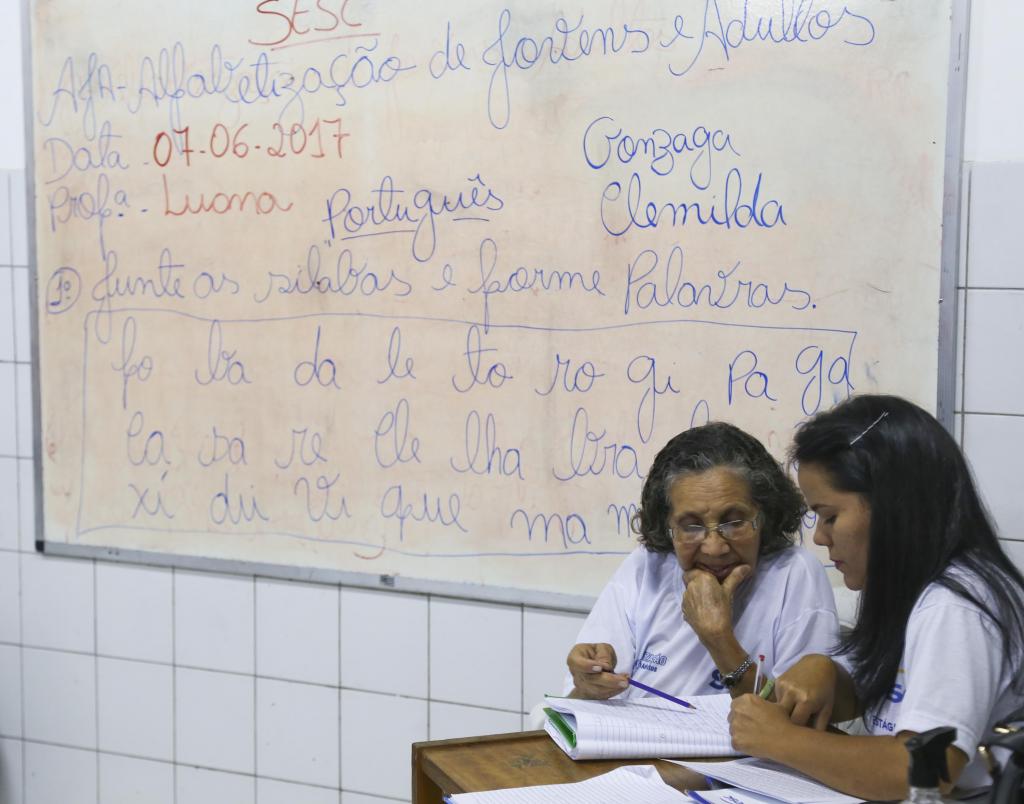 SESC
AJA-Alfabetização de Jovens e Adultos
Data. 07.06.2017
Gonzaga
Profª. Luana
Português
Clemilda
1º Junte as silabas e forme Palavras.
fo va da le to ro gi pa ga
Ca sa re Cle lha bra
xí du Vi que ma